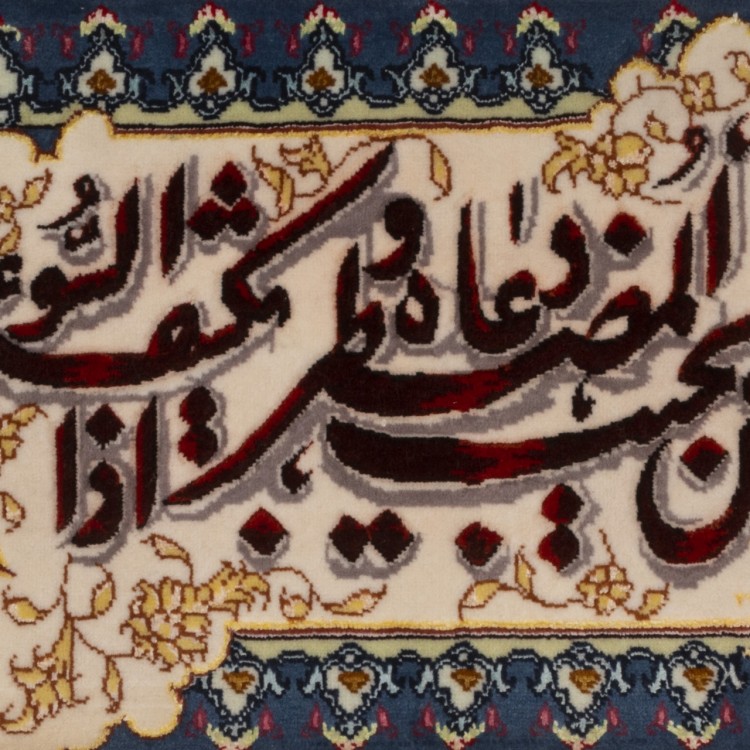 أمن يجيب المضطر إذا دعاه و يكشف السوء